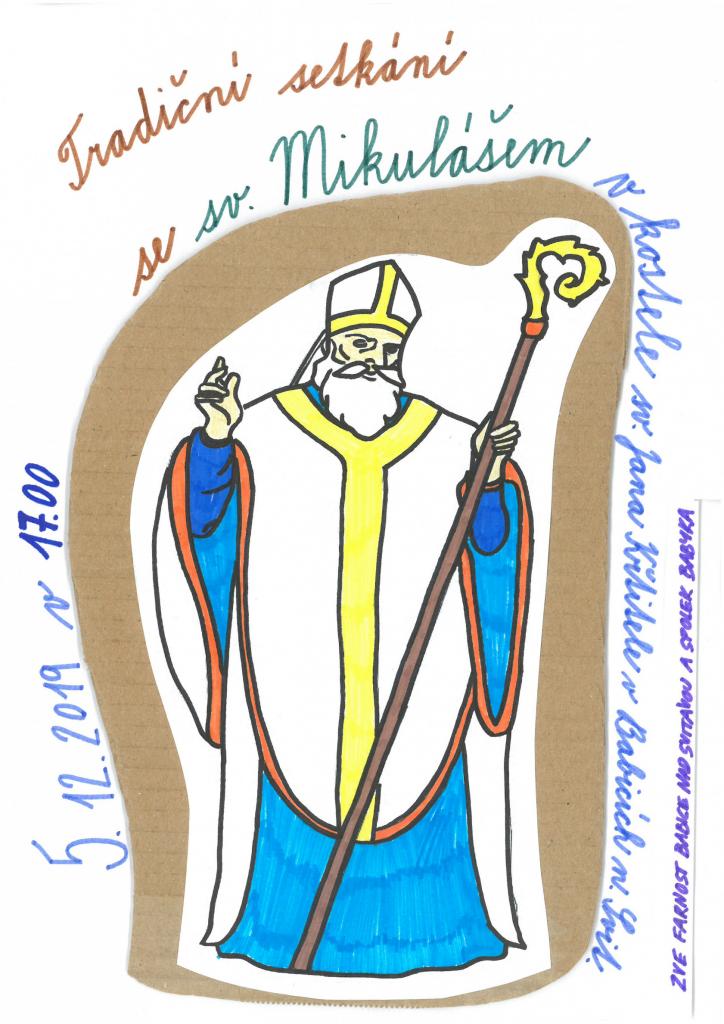 Tradiční setkání
se sv. Mikulášem
v kostele sv. Jana Křtitele v Babicích n. Svit.
5. 12. 2019 v 17.00
ZVE FARNOST BABICE NAD SVITAVOU A SPOLEK BABYKA